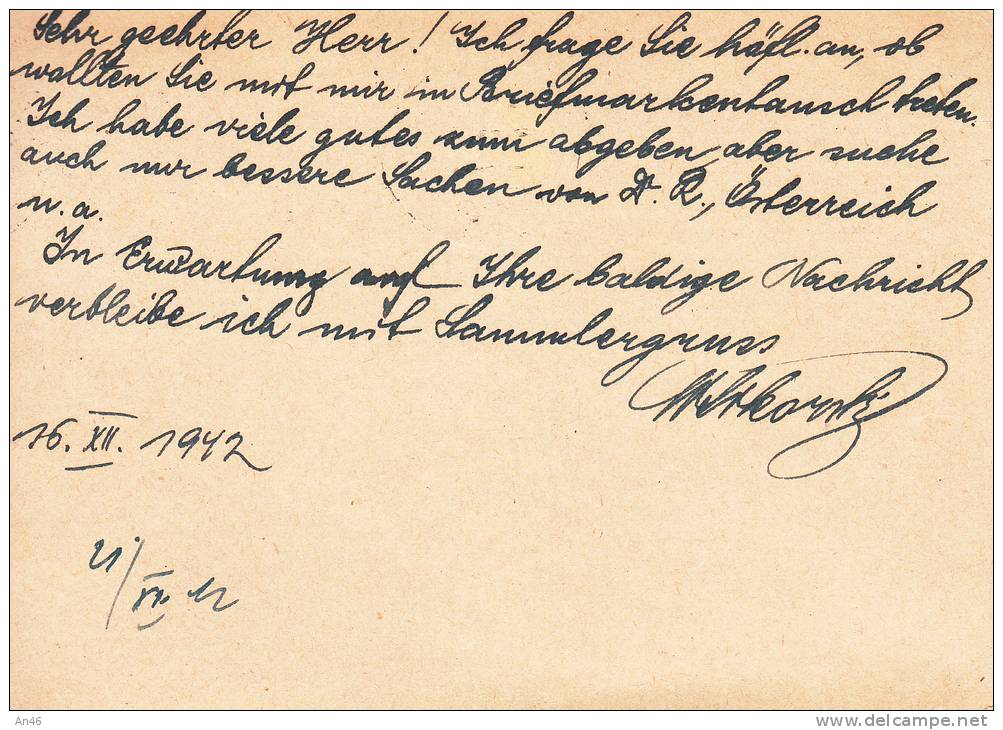 Sehr geehrter Herr! Ich frage Sie höfl. an, ob
wollten Sie mit mir in Briefmarkentausch treten.
Ich habe viele gutes zum abgeben, aber suche
auch nur bessere Sachen von D. R., Österreich
u. a.
In Erwartung auf Ihre baldige Nachricht
verbleibe ich mit Sammlergruss
16. XII. 1942
21/
An46
www.delcampe.net